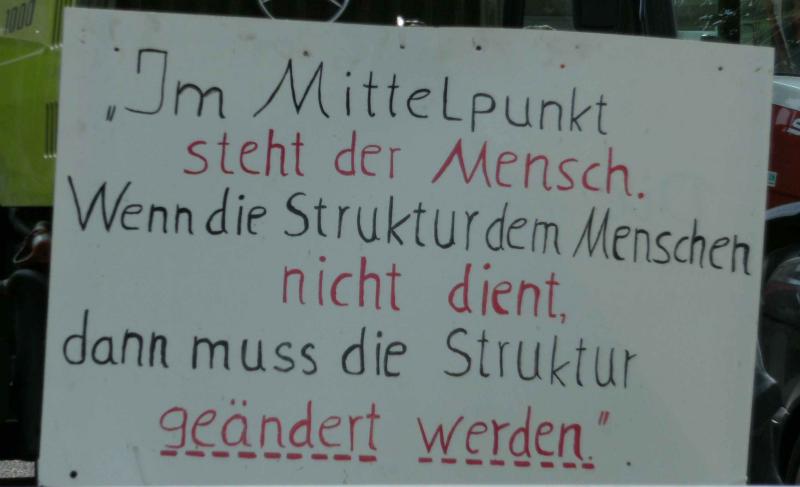 1000
„Im Mittelpunkt
steht der Mensch.
Wenn die Struktur dem Menschen
nicht dient,
dann muss die Struktur
geändert werden.".